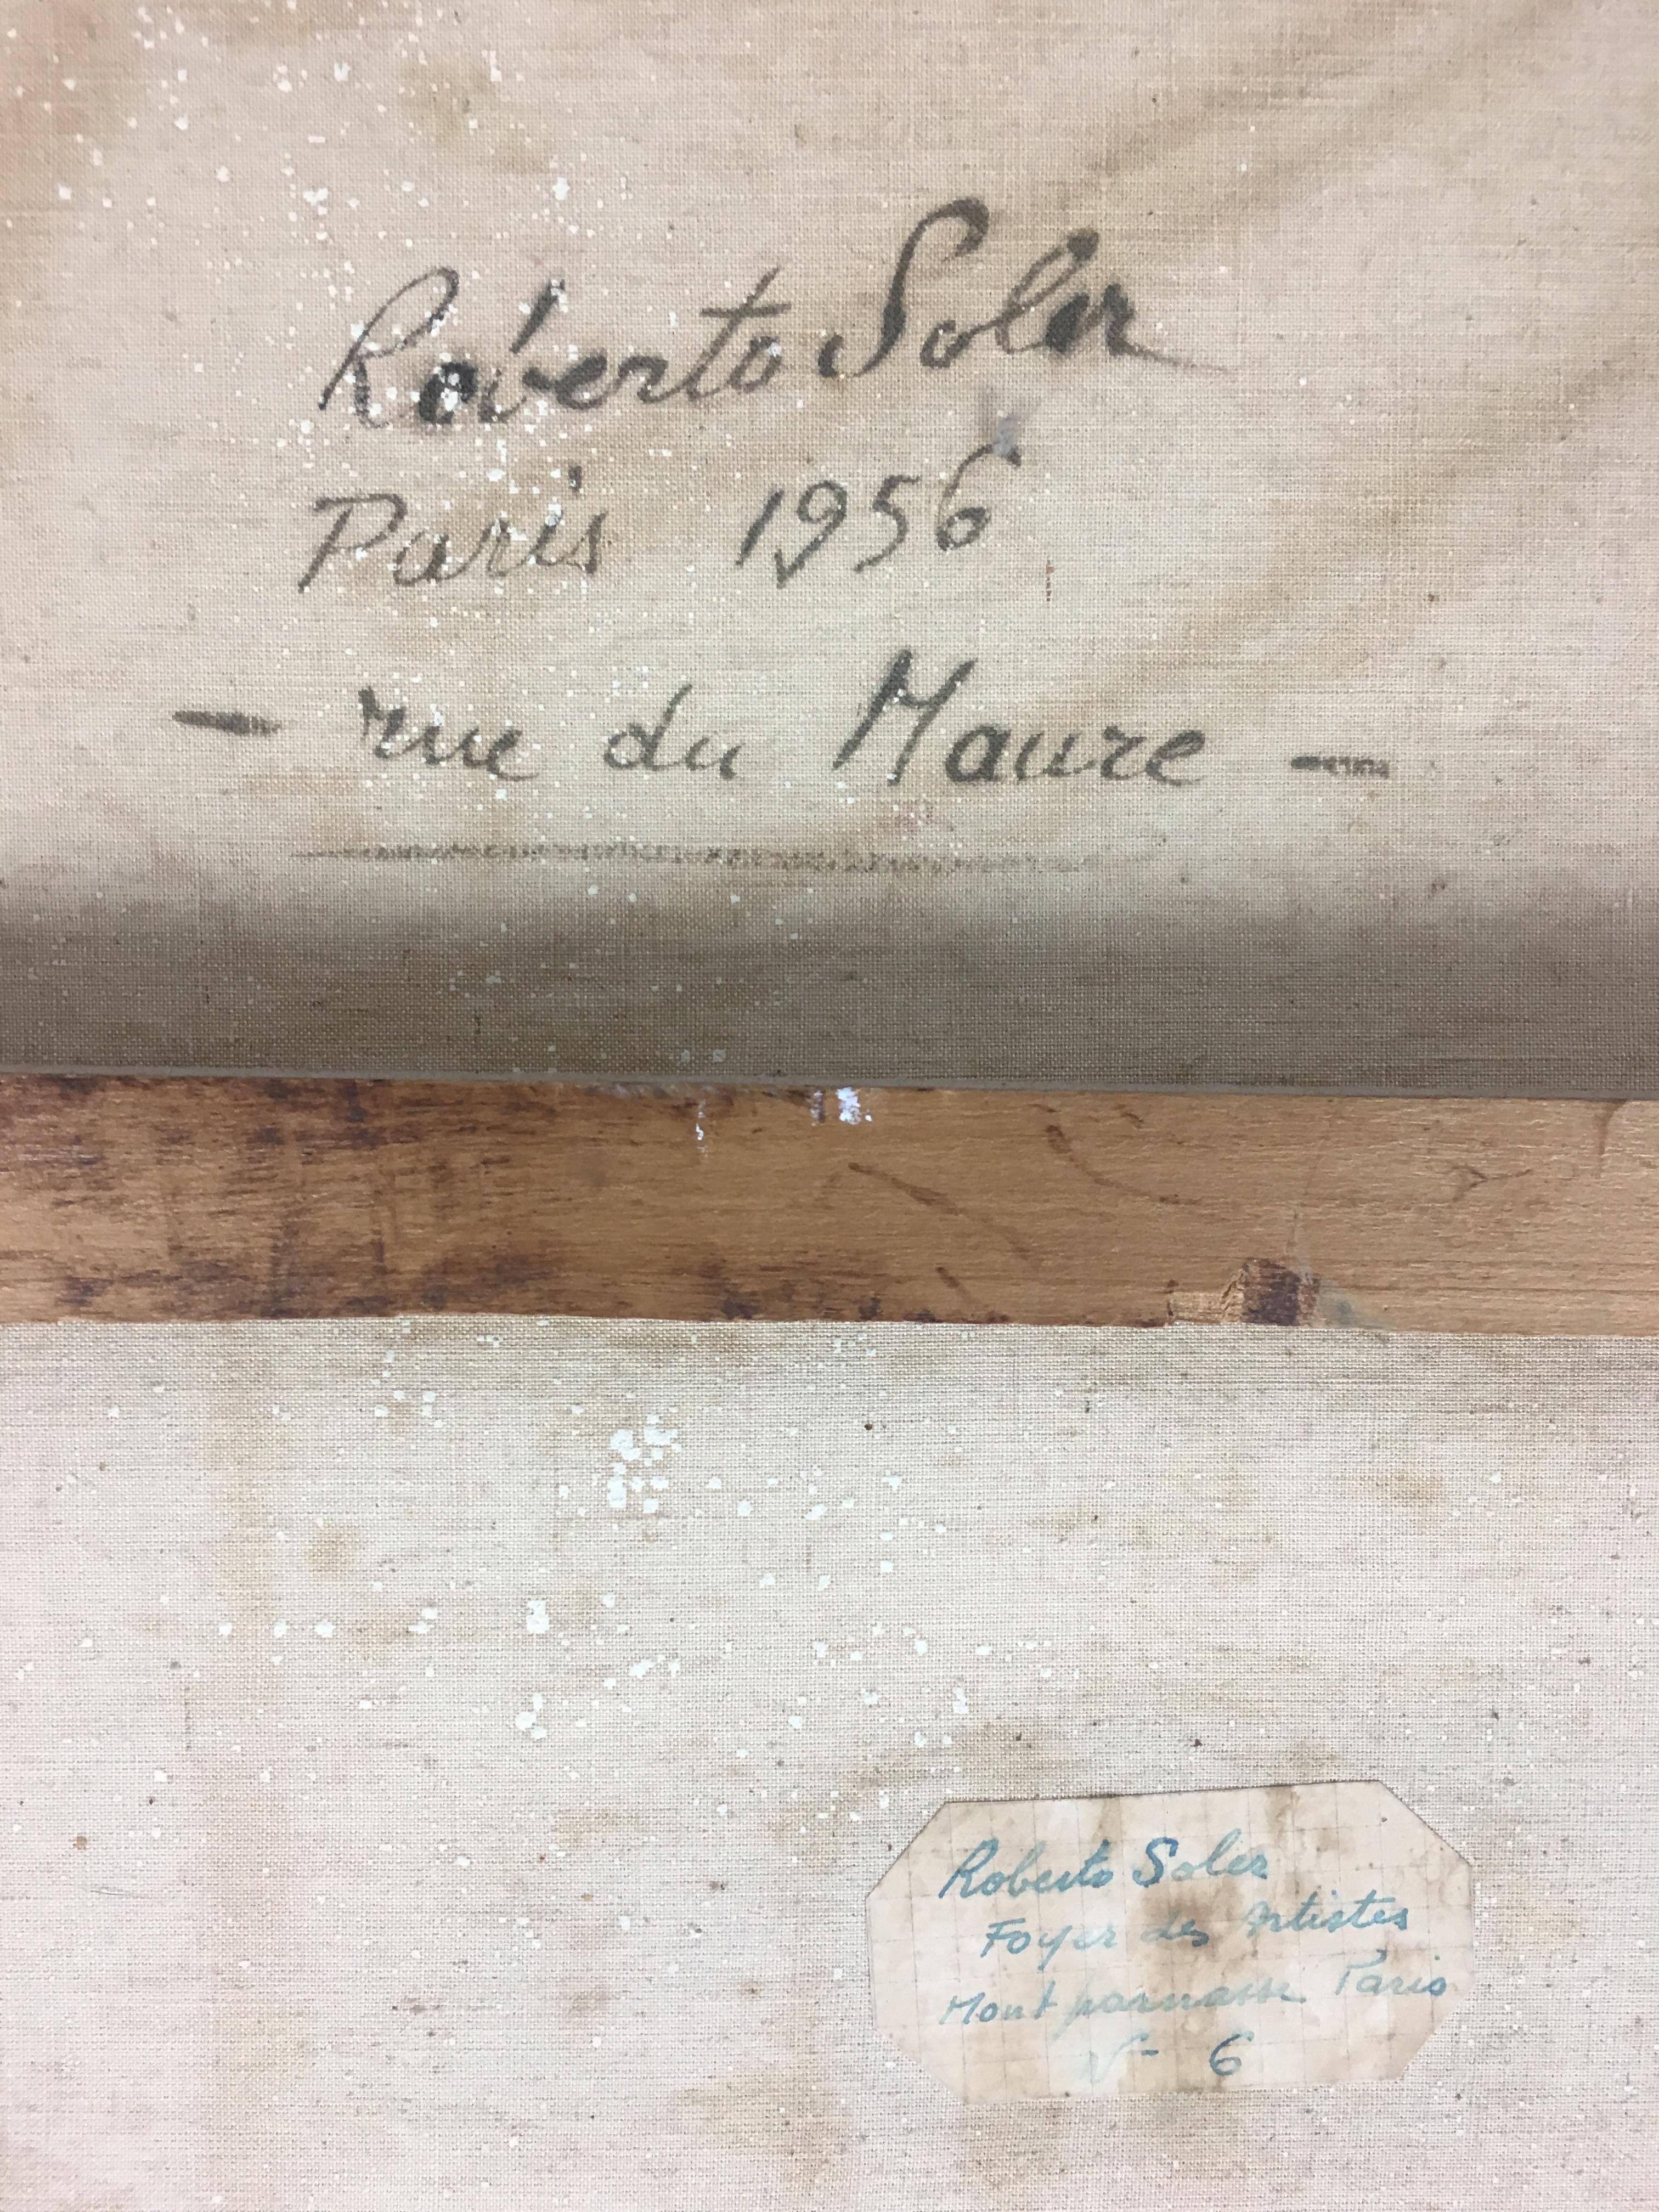 Roberto Soler
Paris 1956
- rue du Maure -
Roberto Soler
Foyer des Artistes
Montparnasse Paris
N- 6